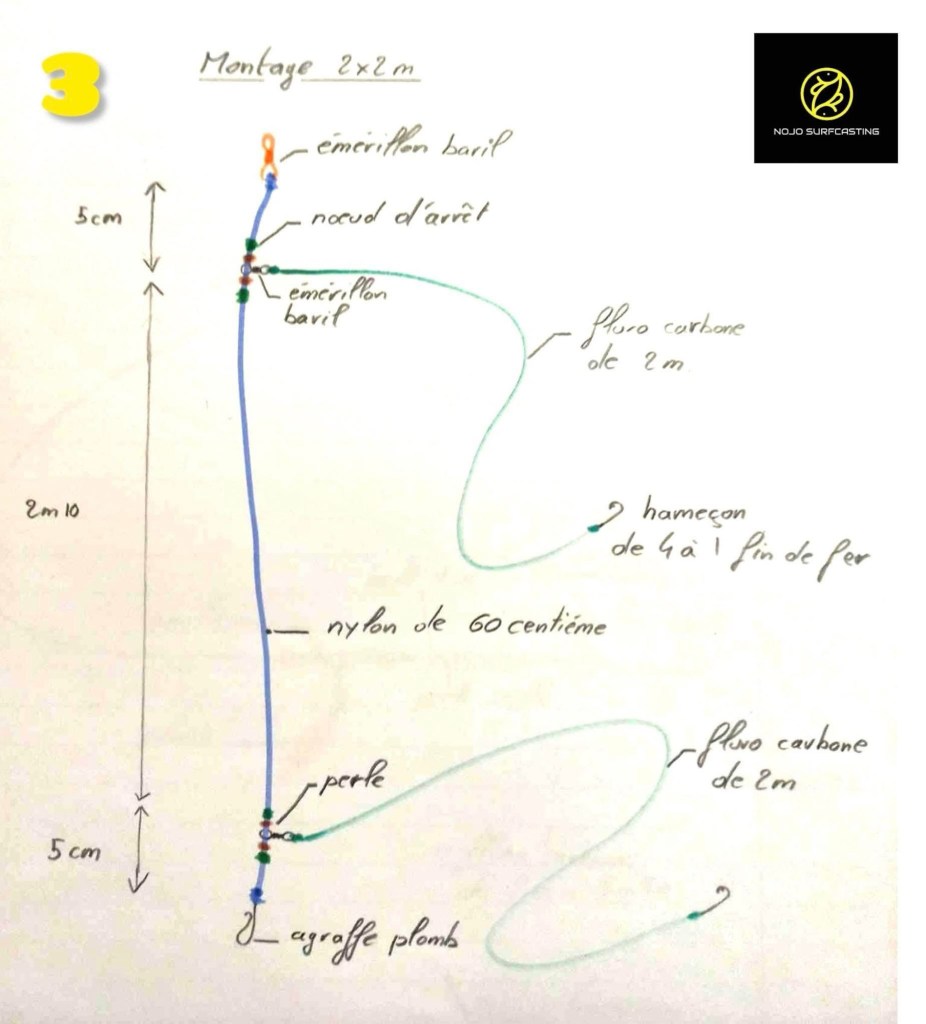 3
Montage 2x2m
NOJO SURFCASTING
émérillon baril
5cm
nœud d'arrêt
émérillon
baril
fluro carbone
de 2m
2m10
hameçon
de 4 à 1 fin de fer
nylon de 60 centiéme
fluro carbone
de 2m
perle
5cm
agraffe plomb